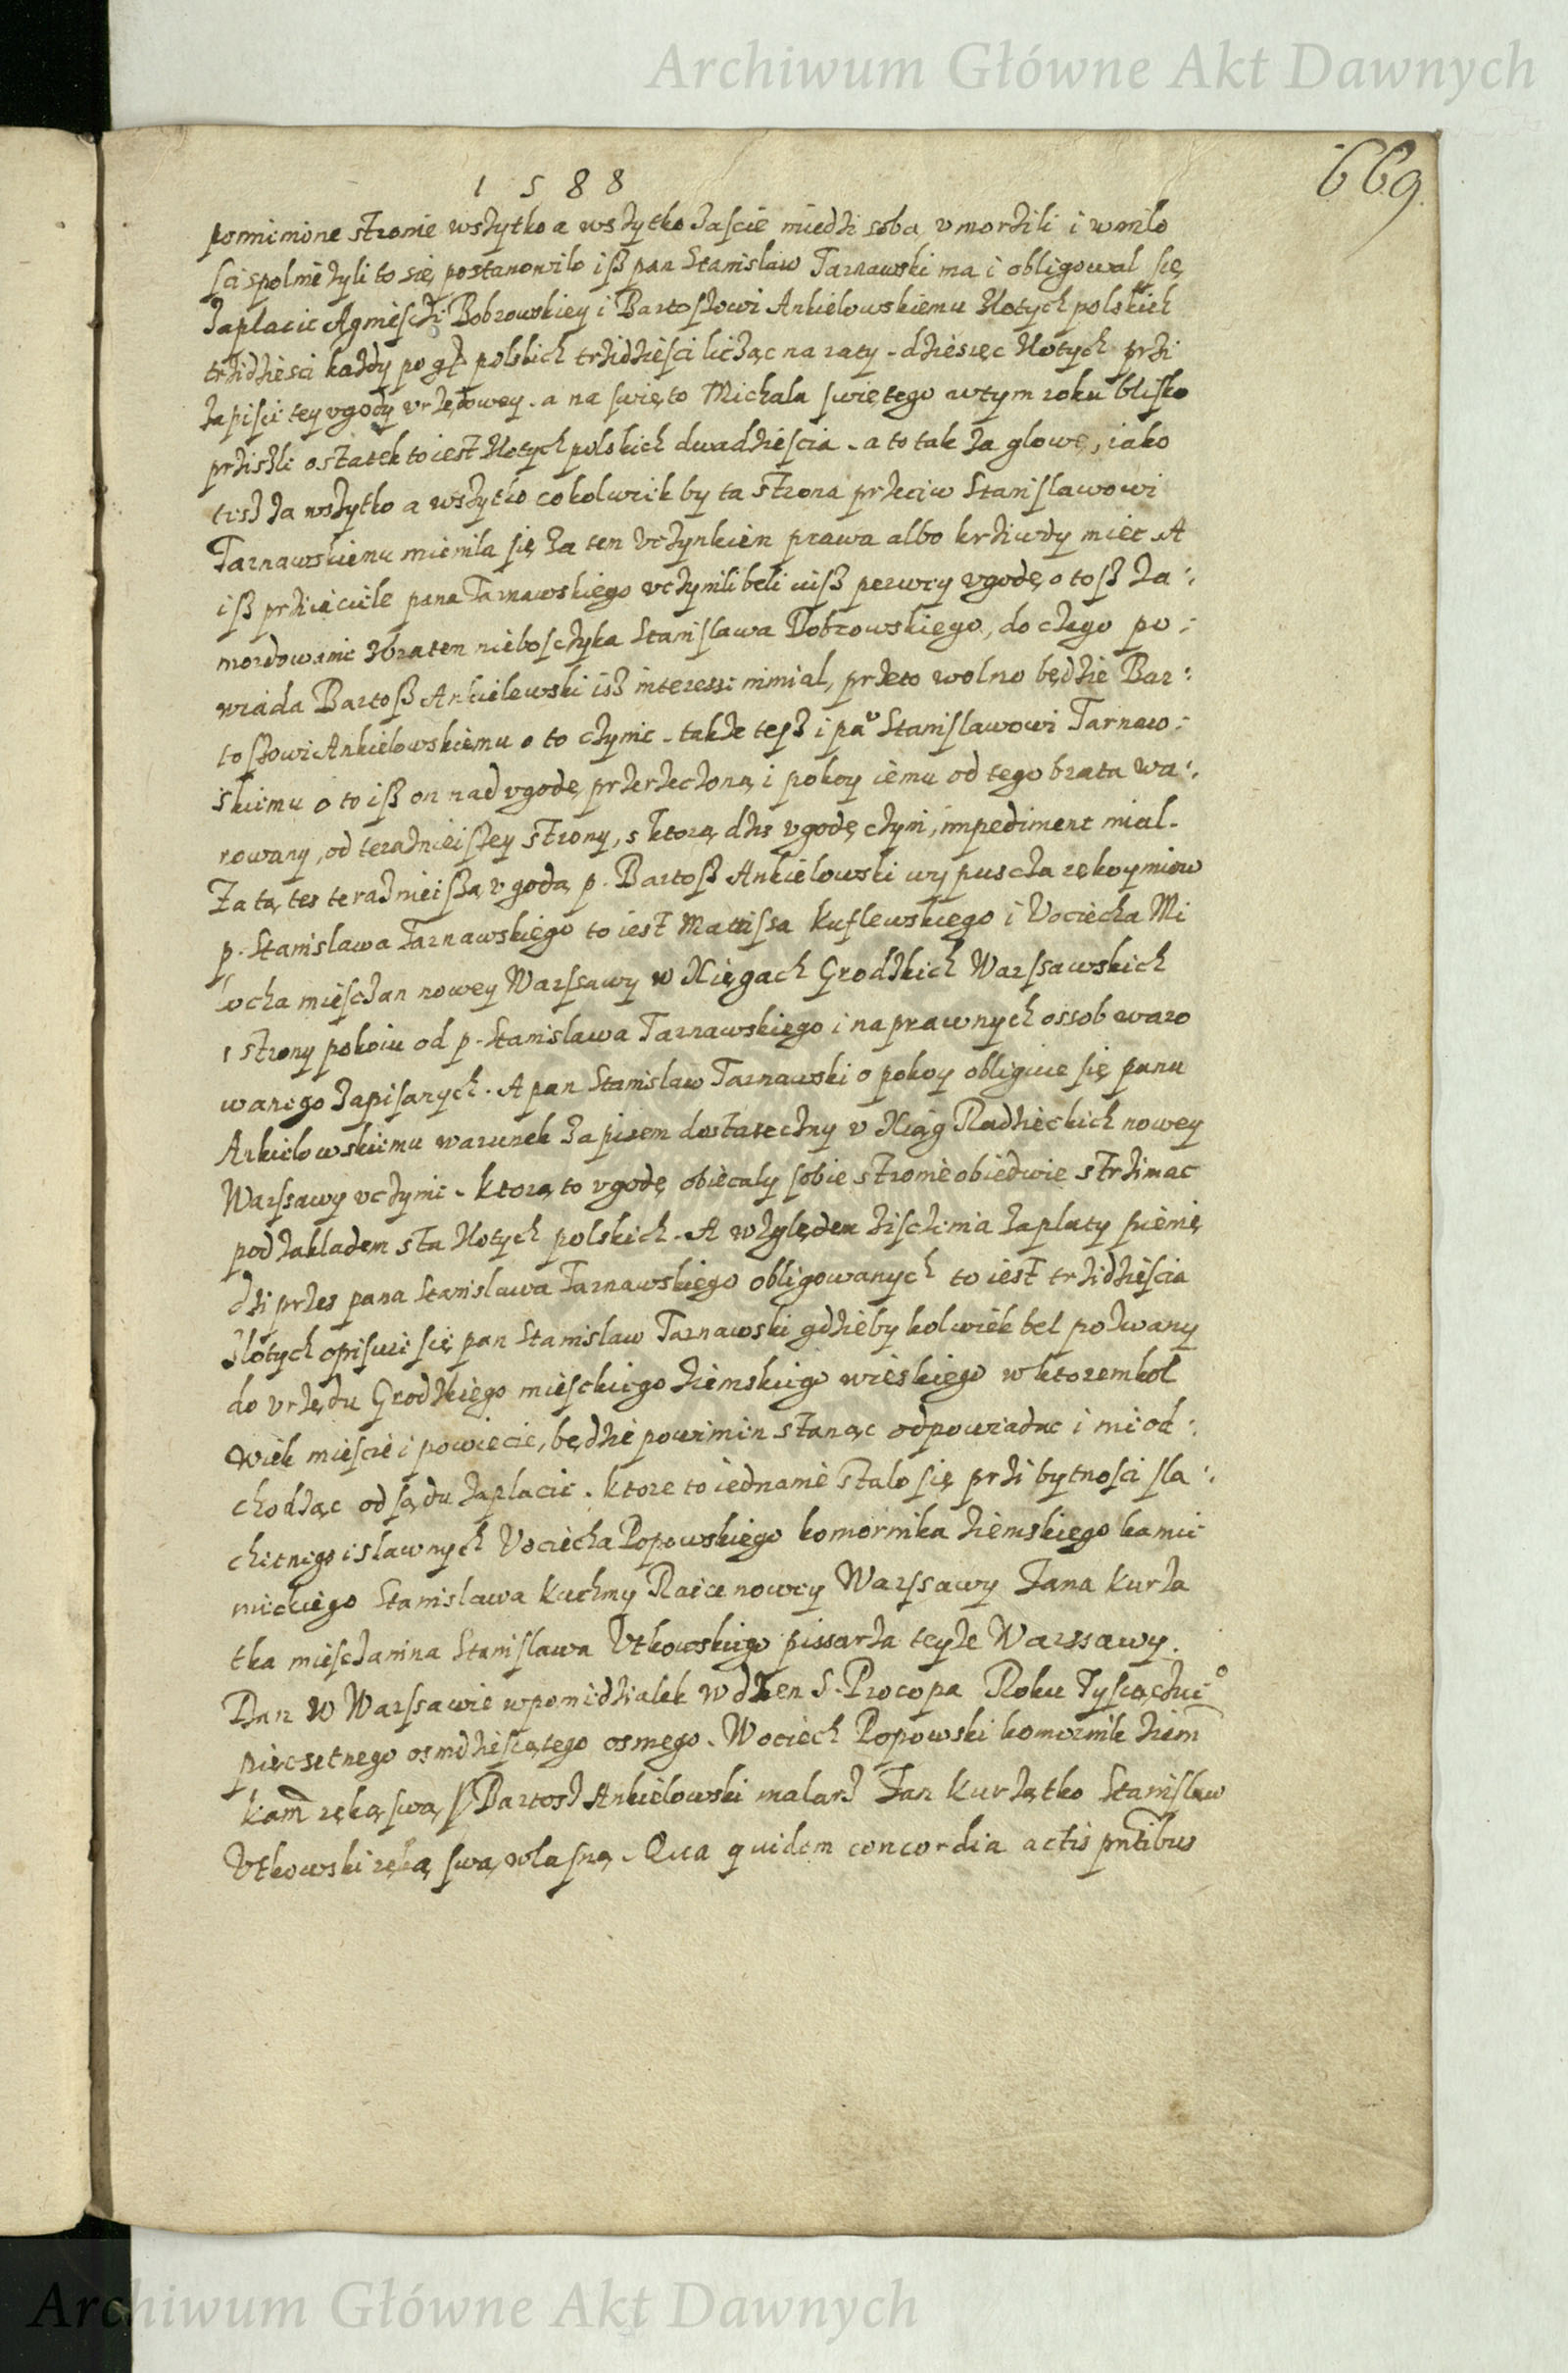 Archiwum Główne Akt Dawnych
669
1588
pomnimione stronie wszytko a wszytko zascie miedzi sobą vmorzili i w milo
sci spolnie zyli to się postanowilo isz pan Stanislaw Tarnawski ma i obligowal się
zaplacic Agnieschi Bobrowskiey i Bartoszowi Ankielowskiemu zlotych polskich
trzidziesci kazdy po gr. polskich trzidziesci licząc na raty - dziesięc zlotych przi
zapisie tey vgody vrzędowey - a na swięto Michala swiętego w tym roku blisko
prziszli ostatek to iest zlotych polskich dwadziescia - a to tak za glowę, iako
tesz za wszytko a wszytko cokolwiek by ta strona przeciw Stanislawowi
Tarnawskiemu mienila się za ten vczynkiem prawa albo krziwdy miec A
isz prziiaciele pana Tarnawskiego vczynili beli iusz perwey vgodę o tosz za:
mordowanie z bratem nieboszczyka Stanislawa Dobrowskiego, do czego po:
wiada Bartosz Ankielewski isz interessi nimial, przeto wolno będzie Bar:
toszowi Ankielowskiemu o to czynic - takze tesz i pau Stanislawowi Tarnaw:
skiemu o to isz on nad vgodę przerzeczoną i pokoy iemu od tego brata wa:
rowany, od teraznieiszey strony, s ktorą dzis vgodę czyni, impediment mial -
Za tą tes teraznieiszą vgodą p. Bartosz Ankielowski wypuscza rękoymiow
p. Stanislawa Tarnawskiego to iest Matissa Kuflewskiego i Vociecha Mi
locha miesczan nowey Warssawy w Xięgach Grodzkich Warssawskich
s strony pokoiu od p. Stanislawa Tarnawskiego i naprawnych ossob waro
wanego zapisanych. A pan Stanislaw Tarnawski o pokoy obliguie się panu
Ankielowskiemu warunek zapisem dostateczny v Xiąg Radzieckich nowey
Warssawy vczynic - ktorą to vgodę obiecaly sobie stronie obiedwie strzimac
pod zakladem sta zlotych polskich - A względem ziszczenia zaplaty pienię
dzi przes pana Stanislawa Tarnawskiego obligowanych to iest trzidziescia
zlotych opisuie się pan Stanislaw Tarnawski gdzieby kolwiek bel pozwany
do vrzędu Grodzkiego mieskiego ziemskiego wieskiego w ktoremkol
wiek miescie i powiecie, będzie powinien stanąc odpowiadac i nie od:
chodząc od sądu zaplacic - ktore to iednanie stalo się przi bytnosci sla:
chetnego i slawnych Vociecha Popowskiego komornika ziemskiego kamie
nieckiego Stanislawa Kuchmy Raice nowey Warssawy Jana Kurzą
tka miesczanina Stanislawa Vtkowskiego pissarza teyze Warssawy.
Dan w Warssawie w poniedzialek w dzien S. Procopa Roku Tysiącznego
pięcsetnego osmdziesiątego osmego - Wociech Popowski komornik ziem
kam ręką swą Bartosz Ankielowski malarz Jan Kurzątko Stanislaw
Vtkowski ręką swą wlasną - Qua quidem concordia actis pntibus
Archiwum Główne Akt Dawnych